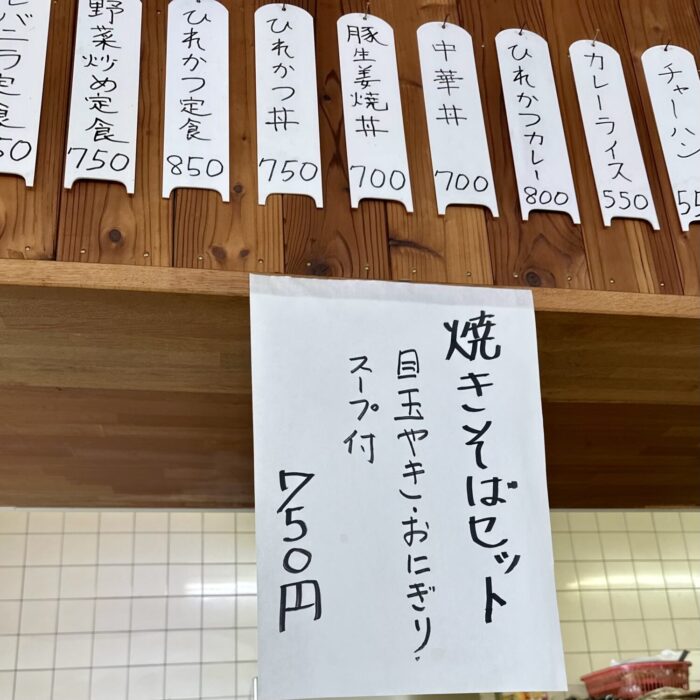 チャーハン
55
カレーライス
550
ひれかつカレー
800
中華丼
700
豚生姜焼丼
700
ひれかつ丼
750
ひれかつ定食
850
野菜炒め定食
750
レバニラ定食
50
焼きそばセット
目玉やき・おにぎり・
スープ付
750円